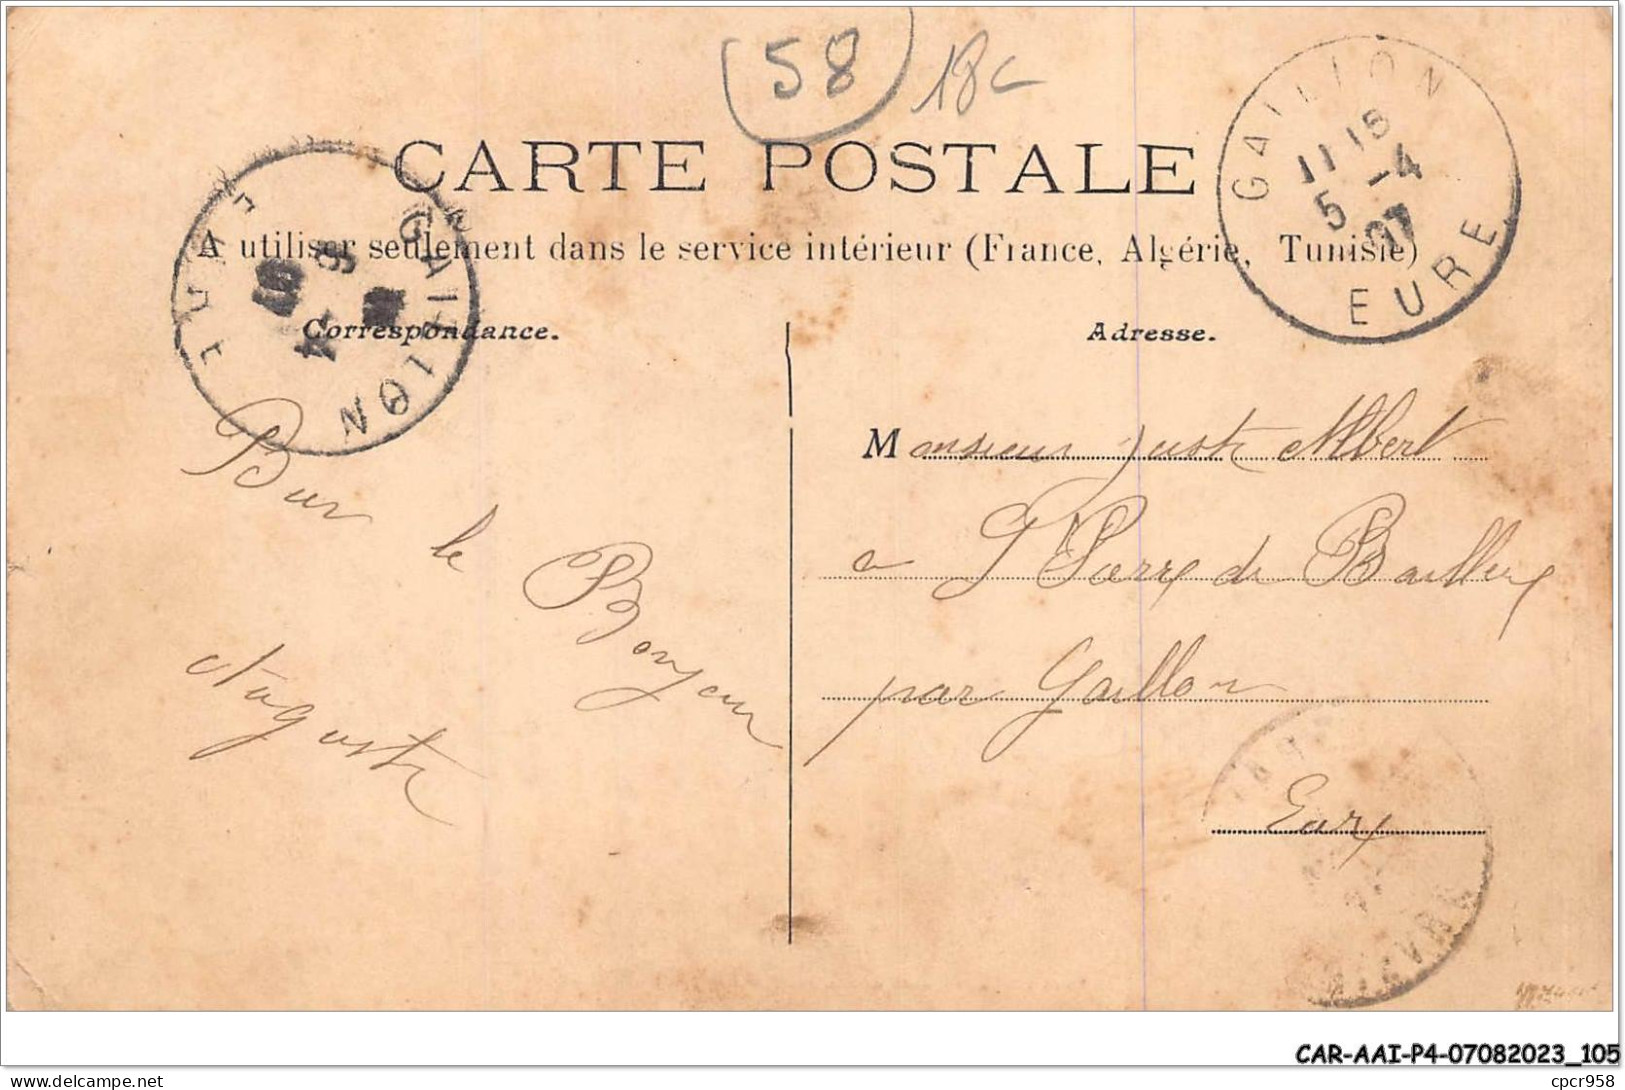 58 18c
CARTE POSTALE
A utiliser seulement dans le service intérieur (France, Algérie, Tunisie)
GAILLON
11 15
5 -4
07
EURE
GAILLON
Correspondance.
Adresse.
Bur le Bonjour
Auguste
Monsieur Juste Albert
a St Pierre de Bailleul
par Gaillon
Eure
CAR-AAI-P4-07082023_105
delcampe.net
cpcr958